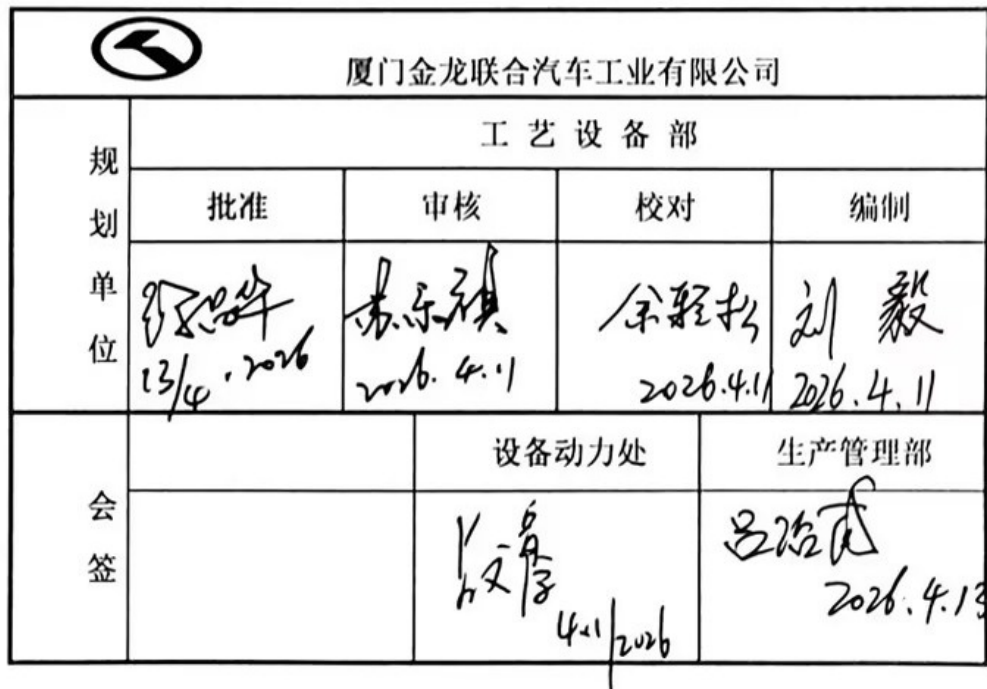 厦门金龙联合汽车工业有限公司
规划单位
工艺设备部
批准
审核
校对
编制
13/4.2026
2026.4.11
余轻松
2026.4.11
刘毅
2026.4.11
会签
设备动力处
生产管理部
4.11/2026
2026.4.13